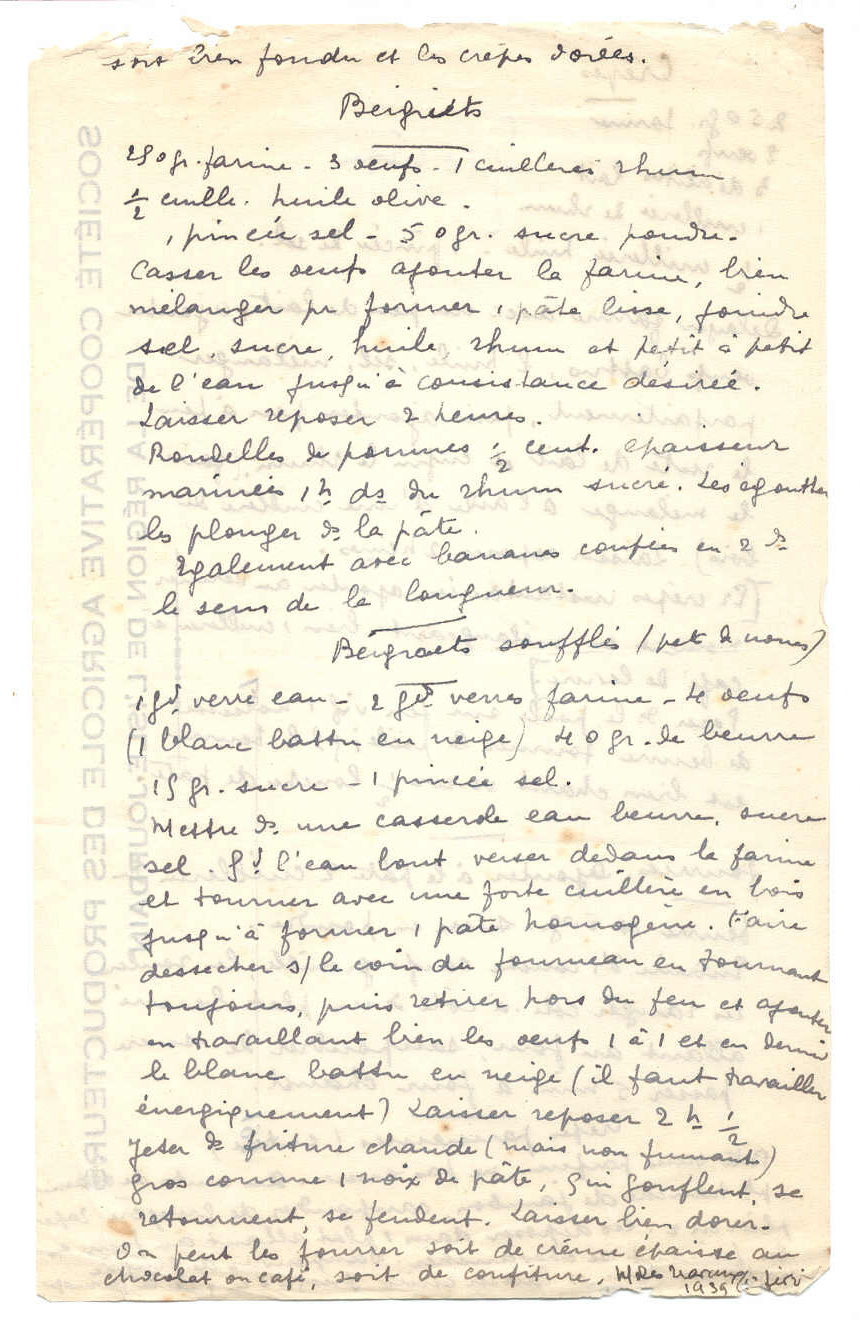 soit bien fondu et les crêpes dorées.
Beignets
250 gr. farine - 3 oeufs - 1 cuillerée rhum
1/2 cuille. huile olive.
1 pincée sel - 50 gr. sucre poudre.
Casser les oeufs ajouter la farine, bien
mélanger pr former 1 pâte lisse, joindre
sel, sucre, huile, rhum et petit à petit
de l'eau jusqu'à consistance désirée.
Laisser reposer 2 heures.
Rondelles de pommes 1/2 cent. epaisseur
marinées 1 h ds du rhum sucré. Les égoutter
les plonger ds la pâte.
Egalement avec bananes coupées en 2 ds
le sens de la longueur.
Beignets soufflés (pet de nones)
1 gd verre eau - 2 gds verres farine - 4 oeufs
(1 blanc battu en neige) 40 gr. de beurre
15 gr. sucre - 1 pincée sel.
Mettre ds une casserole eau beurre, sucre
sel. Qd l'eau bout verser dedans la farine
et tourner avec une forte cuillère en bois
jusqu'à former 1 pâte homogène. Faire
dessecher s/ le coin du fourneau en tournant
toujours, puis retirer hors du feu et ajouter
en travaillant bien les oeufs 1 à 1 et en dernier
le blanc battu en neige (il faut travailler
énergiquement) Laisser reposer 2 h 1/2
Jeter ds friture chaude (mais non fumant)
gros comme 1 noix de pâte, qui gonflent, se
retournent, se fendent. Laisser bien dorer.
On peut les fourrer soit de crème épaisse au
chocolat ou café, soit de confiture.
1939
SOCIÉTÉ COOPÉRATIVE AGRICOLE DES PRODUCTEURS
DE LA RÉGION DE L'ISLE-JOURDAIN